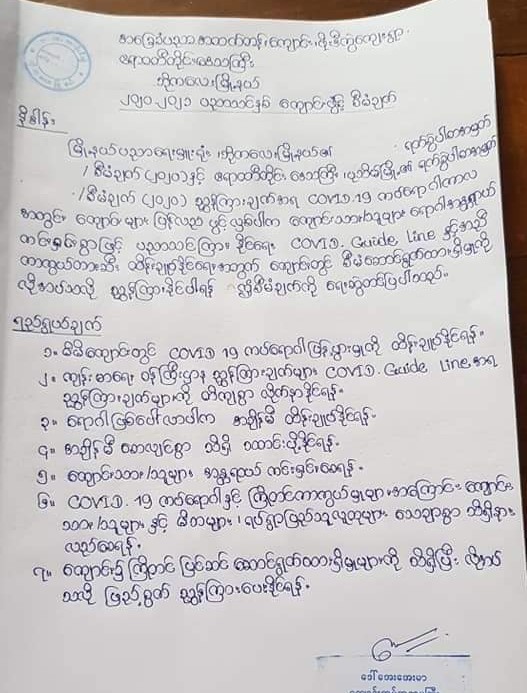 အခြေခံပညာအထက်တန်းကျောင်း၊
ဧရာဝတီတိုင်းဒေသကြီး
ဘိုကလေးမြို့နယ်
၂၀၂၀-၂၀၂၁ ပညာသင်နှစ် ကျောင်းဖွင့် စီမံချက်
နိဒါန်း
မြို့နယ်ပညာရေးမှူးရုံး၊ ဘိုကလေးမြို့နယ်၏ ရက်စွဲပါစာအမှတ်
/စီမံချက်(၂၀၂၀)နှင့် ဧရာဝတီတိုင်း ဒေသကြီး၊ ပုသိမ်မြို့၏ ရက်စွဲပါစာအမှတ်
/စီမံချက်(၂၀၂၀) ညွှန်ကြားချက်အရ COVID.19 ကပ်ရောဂါကာလ
အတွင်း ကျောင်းများ ပြန်လည် ဖွင့်လှစ်ပါက ကျောင်းသား/သူများ ရောဂါအန္တရာယ်
ကင်းရှင်းစွာဖြင့် ပညာသင်ကြား နိုင်ရေး COVID. Guide Line နှင့်အညီ
ကာကွယ်တားဆီး ထိန်းချုပ်နိုင်ရေးအတွက် ကျောင်းတွင် စီမံဆောင်ရွက်ထားရှိမှုကို
လိုအပ်သလို ညွှန်ကြားနိုင်ပါရန် ဤစီမံချက်ကို ရေးဆွဲတင်ပြပါသည်။
ရည်ရွယ်ချက်
၁။ မိမိကျောင်းတွင် COVID 19 ကပ်ရောဂါပြန့်ပွားမှုကို ထိန်းချုပ်နိုင်ရန်။
၂။ ကျန်းမာရေး ဝန်ကြီးဌာန ညွှန်ကြားချက်များ COVID. Guide Line အရ
ညွှန်ကြားချက်များကို တိကျစွာ လိုက်နာနိုင်ရန်။
၃။ ရောဂါဖြစ်ပေါ်လာပါက အချိန်မီ ထိန်းချုပ်နိုင်ရန်။
၄။ အချိန်မီ စောလျင်စွာ သိရှိ သတင်းပို့နိုင်ရန်။
၅။ ကျောင်းသား/သူများ အန္တရာယ် ကင်းရှင်းစေရန်။
၆။ COVID. 19 ကပ်ရောဂါနှင့် ကြိုတင်ကာကွယ်မှုများ အကြောင်း ကျောင်း
သား/သူများ နှင့် မိဘများ၊ ရပ်ရွာပြည်သူလူထုများ သေချာစွာ သိရှိနား
လည်စေရန်။
၇။ ကျောင်း၌ ကြိုတင် ပြင်ဆင် ဆောင်ရွက်ထားရှိမှုများကို သိရှိပြီး လိုအပ်
သလို ဖြည့်စွက် ညွှန်ကြားပေးနိုင်ရန်။
ဒေါ်အေးအေးမာ